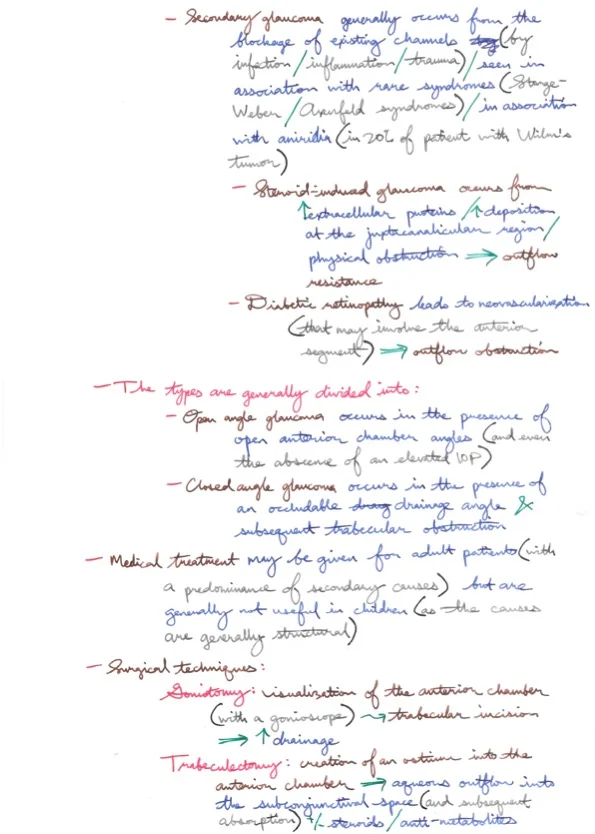 - Secondary glaucoma generally occurs from the
blockage of existing channels (by
infection / inflammation / trauma) / seen in
association with rare syndromes (Sturge-
Weber / Axenfeld syndromes) / in association
with aniridia (in 20% of patient with Wilm's
tumor)
- Steroid-induced glaucoma occurs from
↑ extracellular proteins / ↑ deposition
at the juxtacanalicular region /
physical obstruction ⇒ outflow
resistance
- Diabetic retinopathy leads to neovascularization
(that may involve the anterior
segment) ⇒ outflow obstruction
- The types are generally divided into:
- Open angle glaucoma occurs in the presence of
open anterior chamber angles (and even
the abscence of an elevated IOP)
- Closed angle glaucoma occurs in the presence of
an occludable drainage angle &
subsequent trabecular obstruction
- Medical treatment may be given for adult patients (with
a predominance of secondary causes) but are
generally not useful in children (as the causes
are generally structural)
- Surgical techniques:
Goniotomy: visualization of the anterior chamber
(with a gonioscope) → trabecular incision
⇒ ↑ drainage
Trabeculectomy: creation of an ostium into the
anterior chamber ⇒ aqueous outflow into
the subconjunctival space (and subsequent
absorption) +/- steroids / anti-metabolites